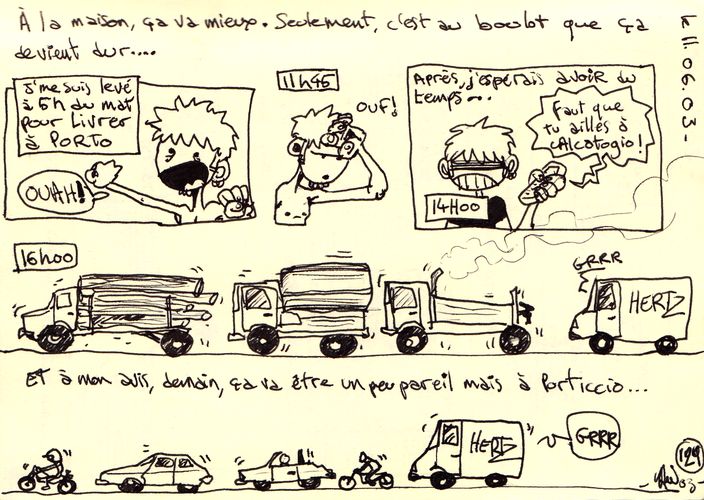 À la maison, ça va mieux. Seulement, c'est au boulot que ça
devient dur....
11.06.03-
J'me suis levé
à 5h du mat
pour livrer
à PORTO
OUAH!
11h45
OUF!
Après, j'espérais avoir du
temps...
Faut que
tu ailles à
cAlcatogio!
14H00
16h00
GRRR
HERTZ
Et à mon avis, demain, ça va être un peu pareil mais à Porticcio...
HERTZ
GRRR
129